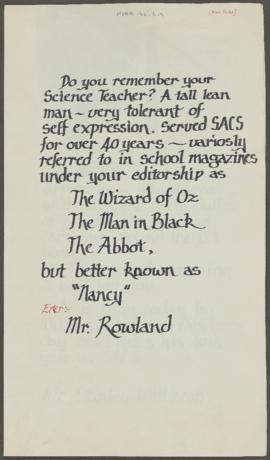 Do you remember your
Science Teacher? A tall lean
man ~ very tolerant of
self expression. Served SACS
for over 40 years ~ variosly
referred to in school magazines
under your editorship as
The Wizard of Oz
The Man in Black
The Abbot,
but better known as
"Nancy"
Enter:-
Mr. Rowland